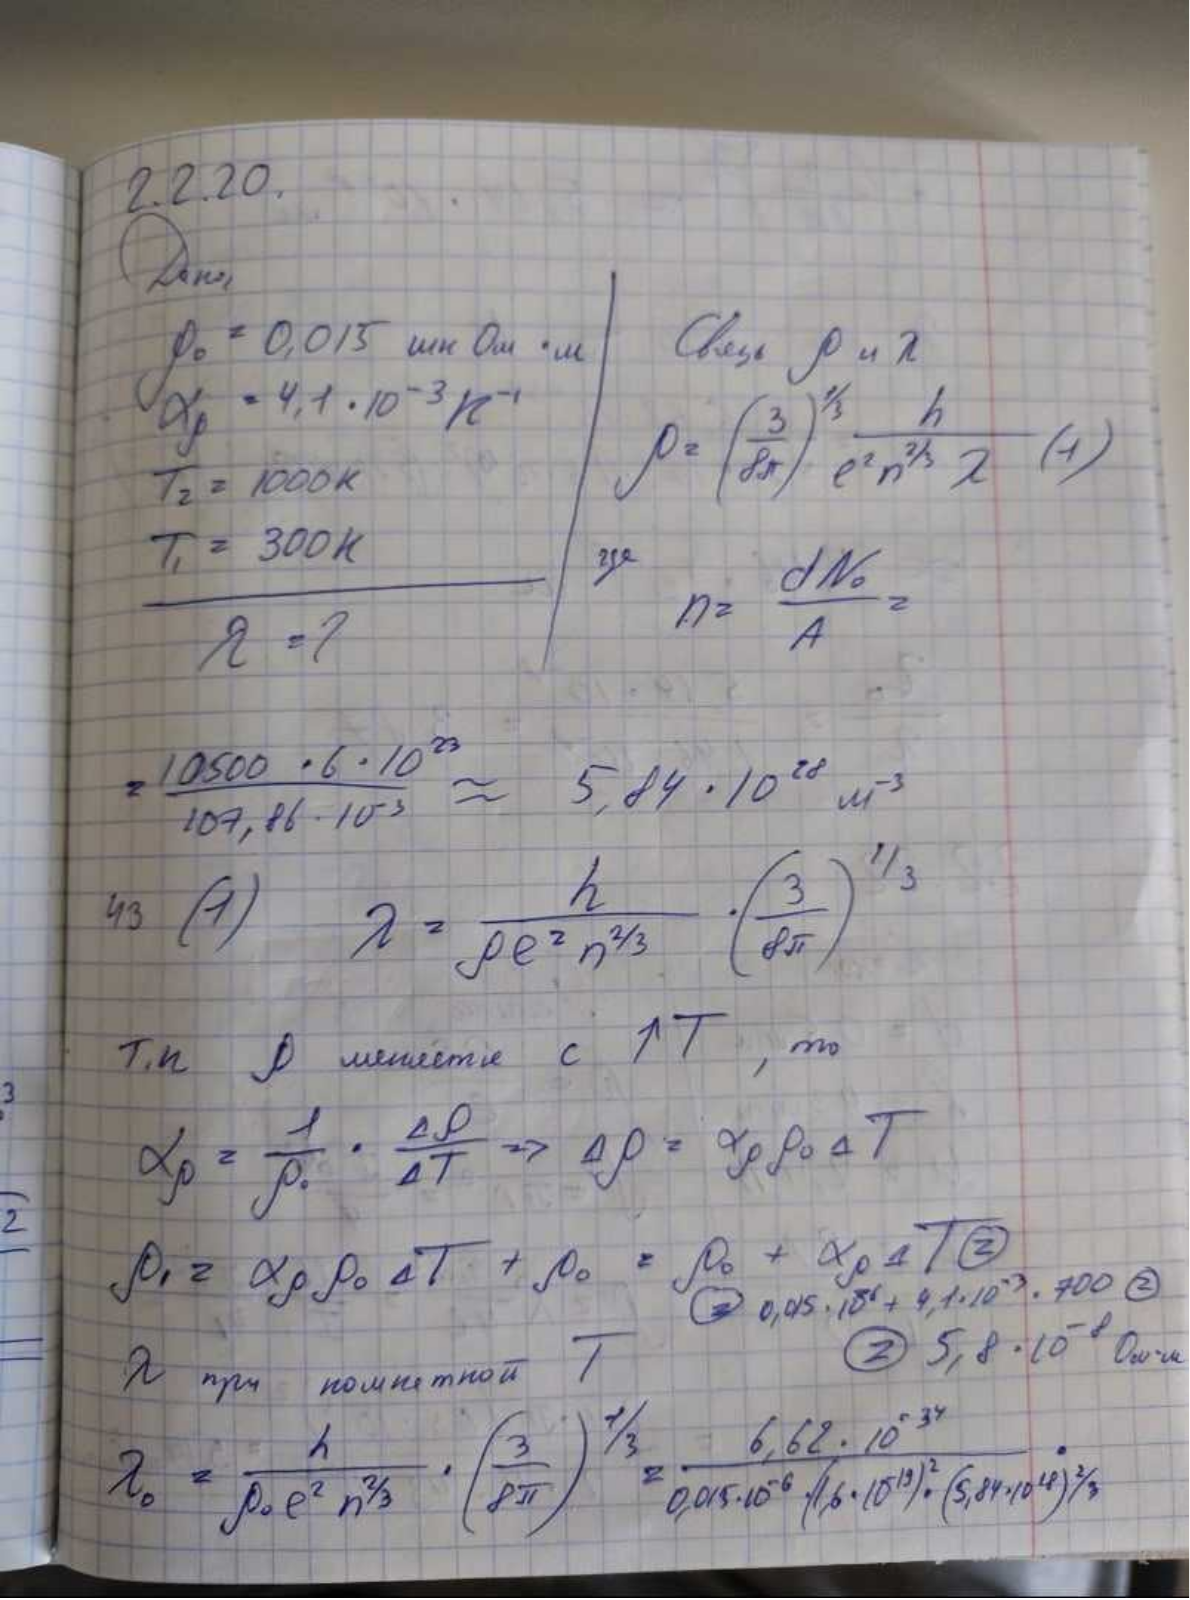 2.2.20.
Дано:
ρ₀ = 0,015 мк Ом · м
αρ = 4,1 · 10⁻³ К⁻¹
T₂ = 1000К
T₁ = 300К
λ = ?
Связь ρ и λ
ρ = (3/8π)^1/3 h/(e² n^2/3 λ) (1)
где
n = dN₀/A =
= 10500 · 6 · 10²³/107,86 · 10⁻³ ≈ 5,84 · 10²⁸ м⁻³
Из (1) λ = h/(ρe² n^2/3) · (3/8π)^1/3
Т.к ρ меняется с ↑T, то
αρ = 1/ρ₀ · Δρ/ΔT => Δρ = αρ ρ₀ ΔT
ρ₁ = αρ ρ₀ ΔT + ρ₀ = ρ₀ + αρ ΔT =
= 0,015 · 10⁻⁶ + 4,1 · 10⁻³ · 700 =
= 5,8 · 10⁻⁸ Ом·м
λ при комнатной T
λ₀ = h/(ρ₀ e² n^2/3) · (3/8π)^1/3 = 6,62 · 10⁻³⁴/(0,015·10⁻⁶ · (1,6 · 10⁻¹⁹)² · (5,84·10²⁸)^2/3) ·
3
2